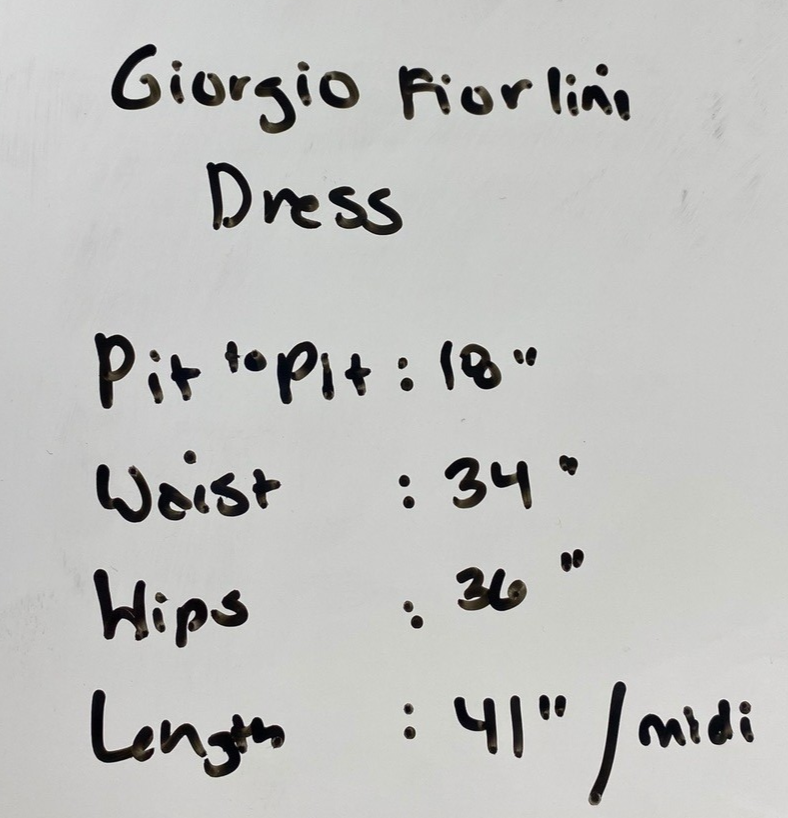 Giorgio Fiorlini
Dress
Pit to Pit : 18"
Waist : 34"
Hips : 36"
Length : 41" / midi